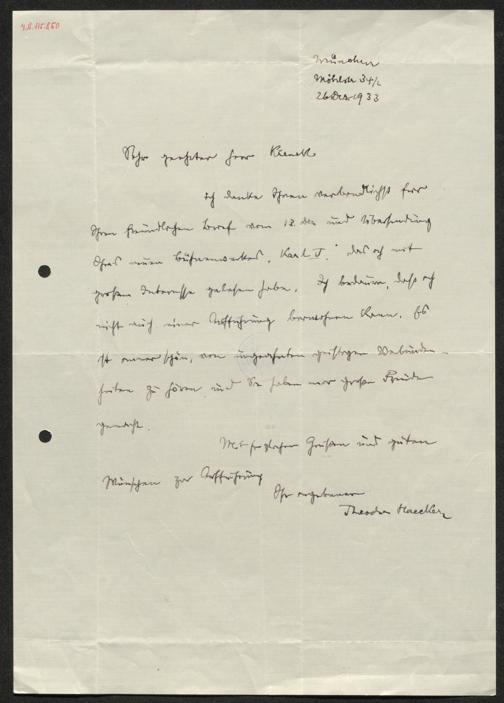 München
Möhlstr 34/2
26 Dez 1933
Sehr geehrter Herr Krenek
ich danke Ihnen verbindlichst für
Ihren freundlichen Brief vom 12. Dez und Übersendung
Ihres neuen Bühnenwerkes, Karl V.' das ich mit
großem Interesse gelesen habe. Ich bedaure, dass ich
nicht auch einer Aufführung beiwohnen kann. Es
ist immer schön, von ungeahnten geistigen Verbunden-
heiten zu hören und Sie haben mir große Freude
gemacht.
Mit herzlichen Grüßen und guten
Wünschen zur Aufführung
Ihr ergebener
Theodor Haecker